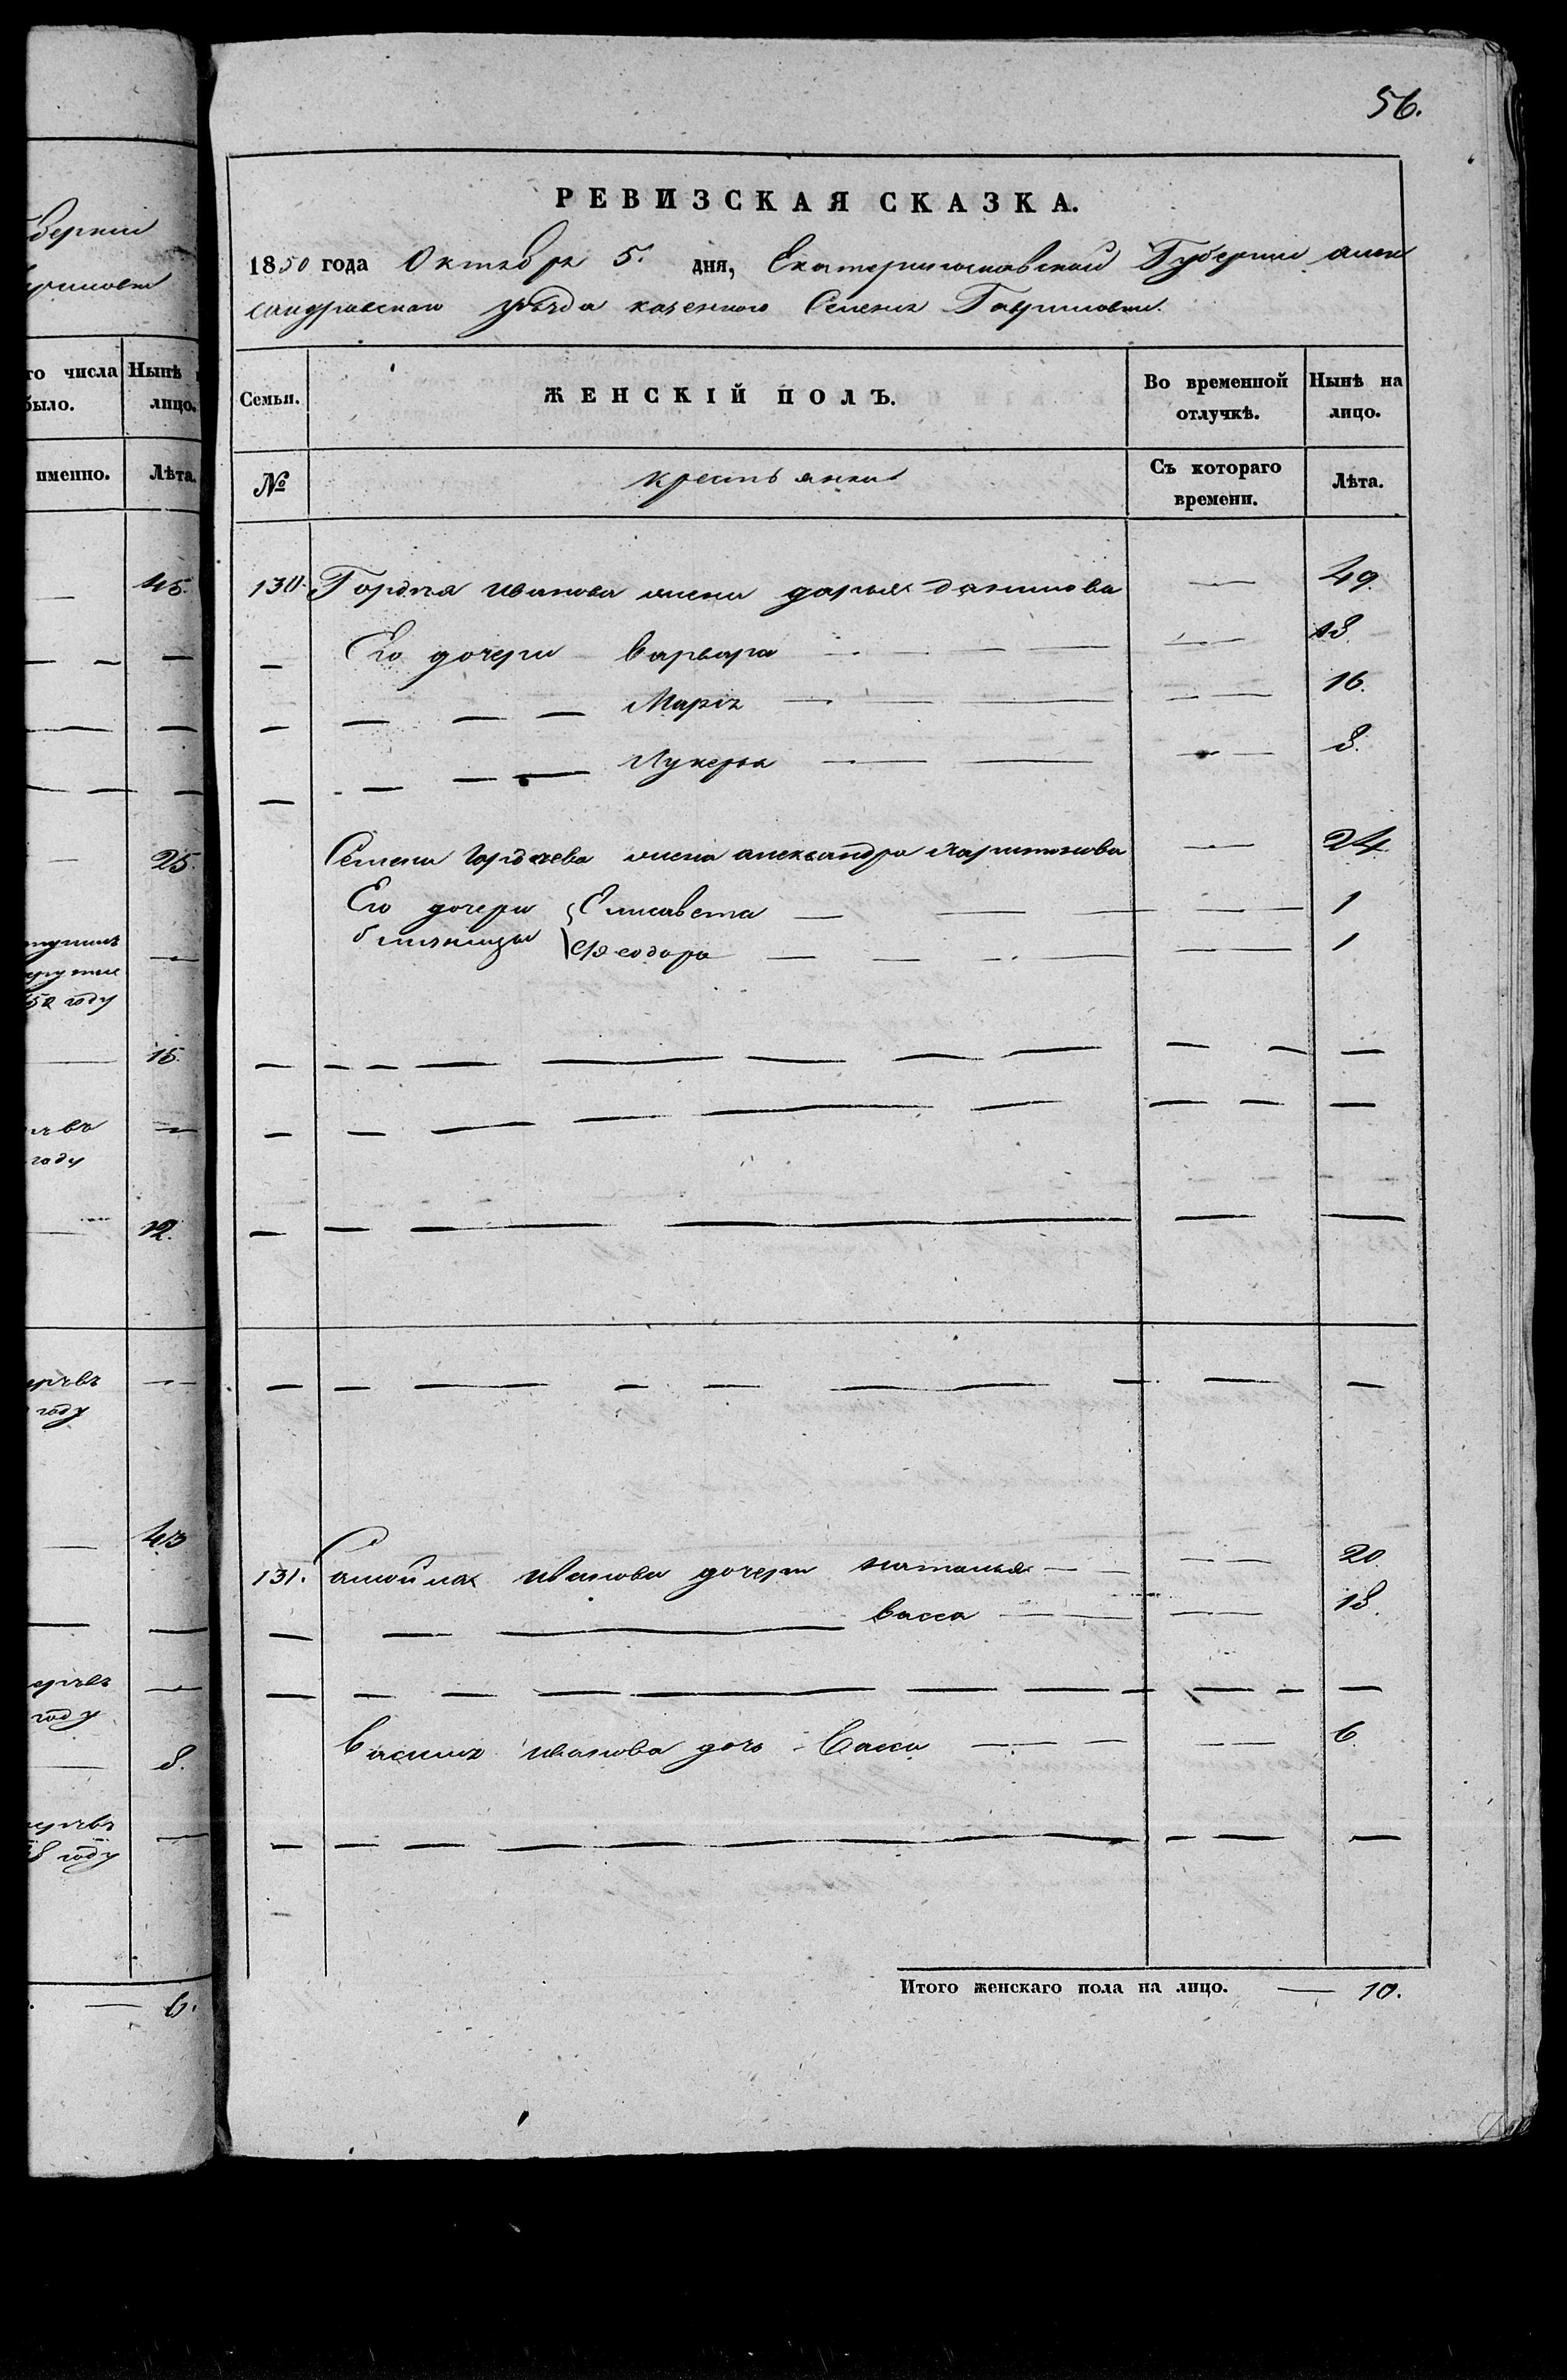 56.
РЕВИЗСКАЯ СКАЗКА.
1850 года Октября 5. дня, Екатеринославской Губернии алек
сандровскаго уѣзда казеннаго Селенія Гавриловки.
Семьи. ЖЕНСКІЙ ПОЛЪ. Во временной отлучкѣ. Нынѣ на лицо.
№ крестьянки Съ котораго времени. Лѣта.
130. Гордѣя Иванова жена дарья данилова — 49.
— Его дочери Варвара — 18.
— Марія — 16.
— Лукерья — 8.
Семена Гордѣева жена александра Харитонова — 24.
Его дочери Елисавета — 1
близницы Феодора — 1
131. Самойла Иванова дочери наталья — 20
— васса — 18.
Василия иванова дочь Васса — 6.
Итого женскаго пола на лицо. — 10.
верніи
го числа Нынѣ
было. лицо.
именно. Лѣта.
45.
25.
году
15.
году
12.
году
43
году
8.
году
6.